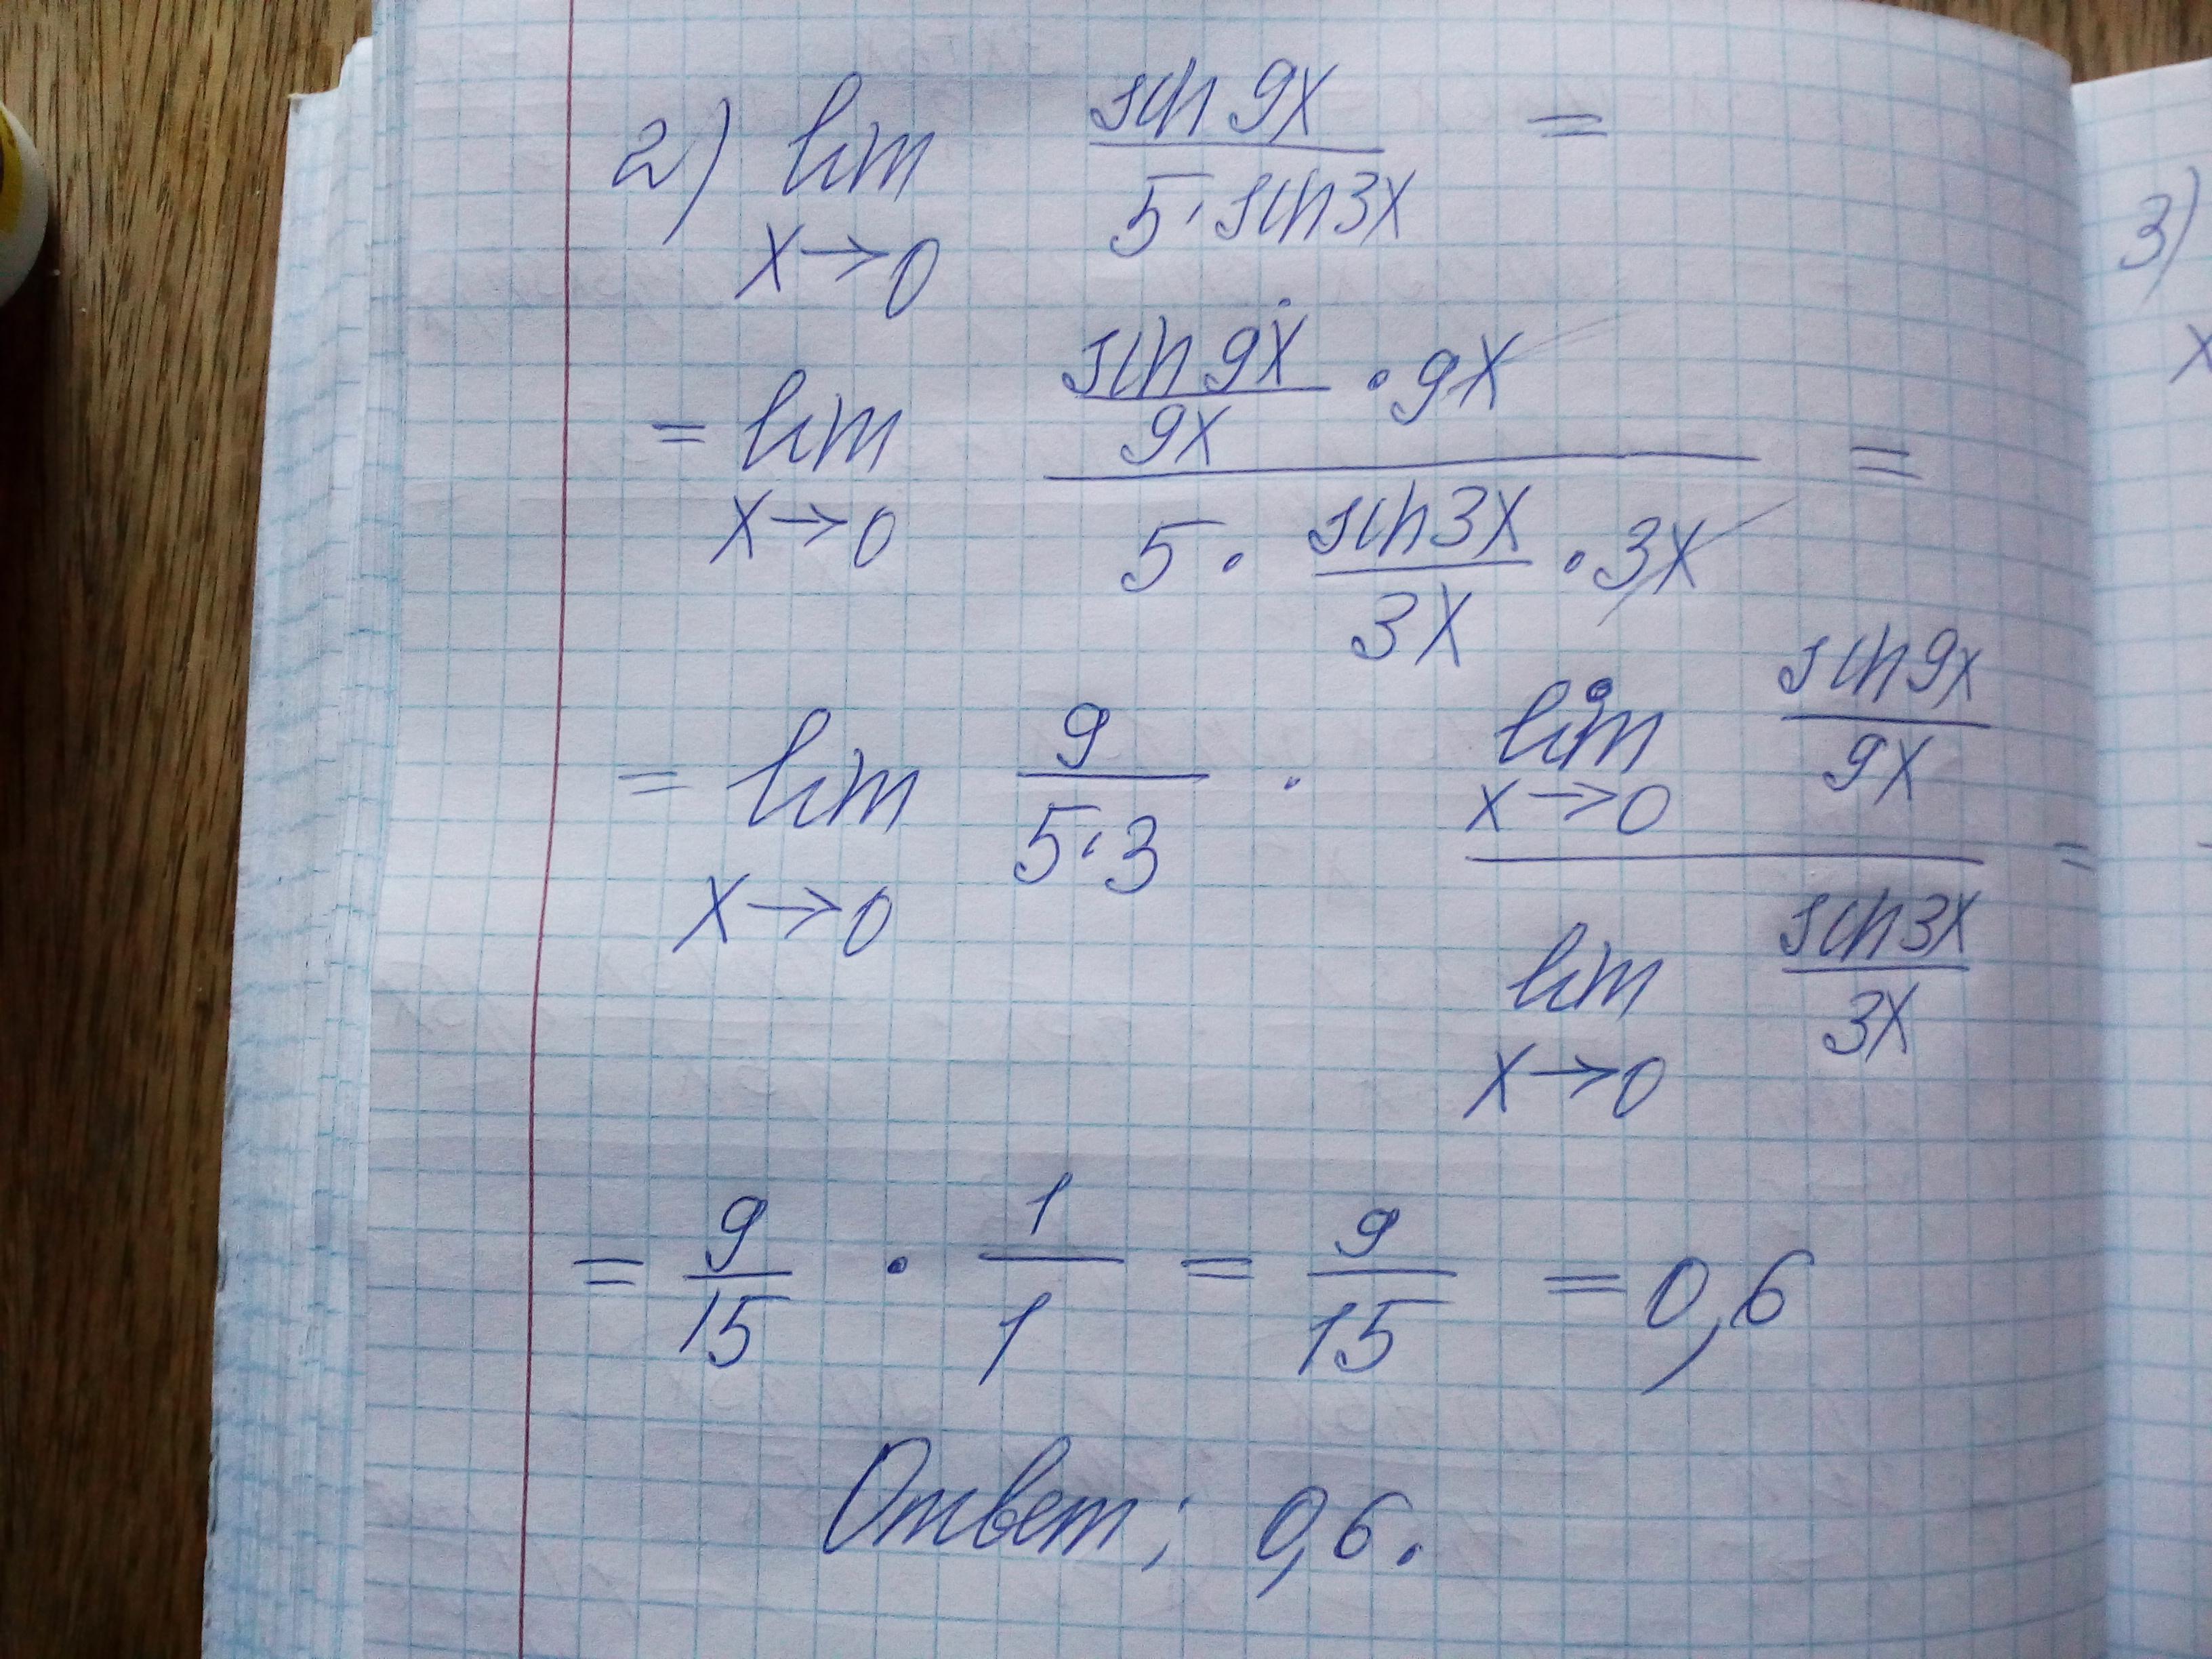 2) lim x→0 sin 9x / 5·sin3x =
= lim x→0 (sin 9x / 9x · 9x) / (5 · sin3x / 3x · 3x) =
= lim x→0 9 / 5·3 · (lim x→0 sin9x / 9x) / (lim x→0 sin3x / 3x) =
= 9/15 · 1/1 = 9/15 = 0,6
Ответ: 0,6.
3)
x